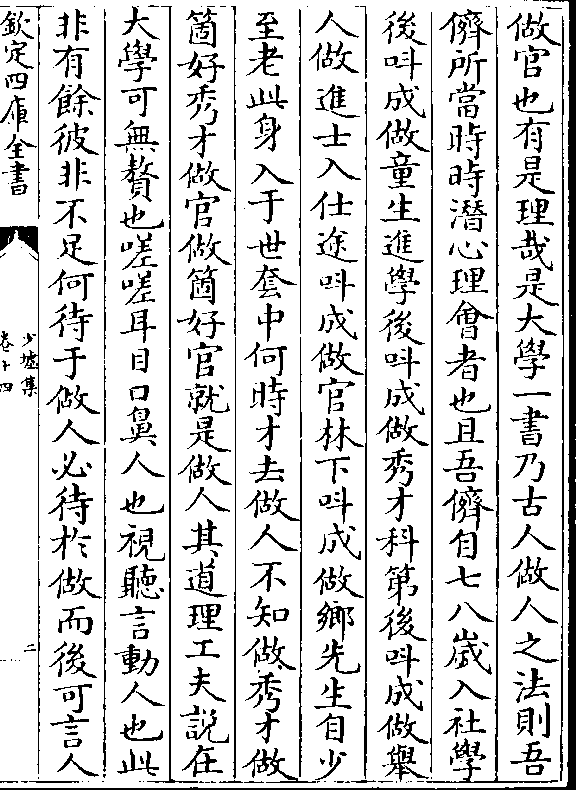 做官也有是理哉是大學一書乃古人做人之法則吾
儕所當時時潛心理會者也且吾儕自七八歲入社學
後呌成做童生進學後呌成做秀才科第後呌成做舉
人做進士入仕途呌成做官林下呌成做鄉先生自少
至老此身入于世套中何時才去做人不知做秀才做
箇好秀才做官做箇好官就是做人其道理工夫説在
大學可無贅也嗟嗟耳目口鼻人也視聽言動人也此
非有餘彼非不足何待于做人必待於做而後可言人
欽定四庫全書
少墟集
卷十四
二